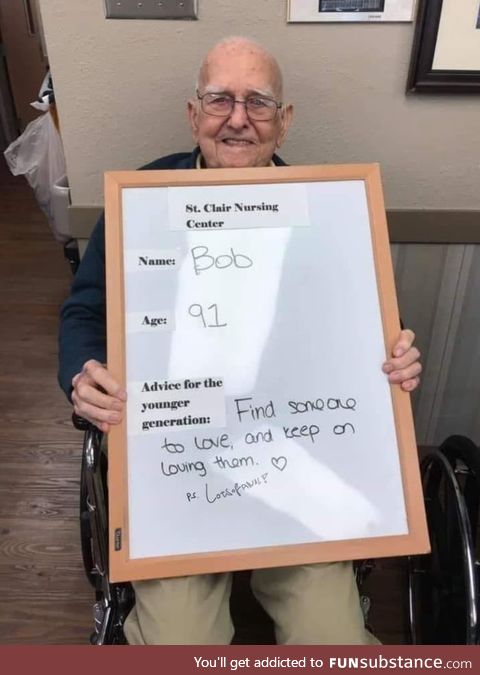 St. Clair Nursing
Center
Name: Bob
Age: 91
Advice for the
younger
generation: Find someone
to love, and keep on
loving them. ♡
P.S.
You'll get addicted to FUNsubstance.com